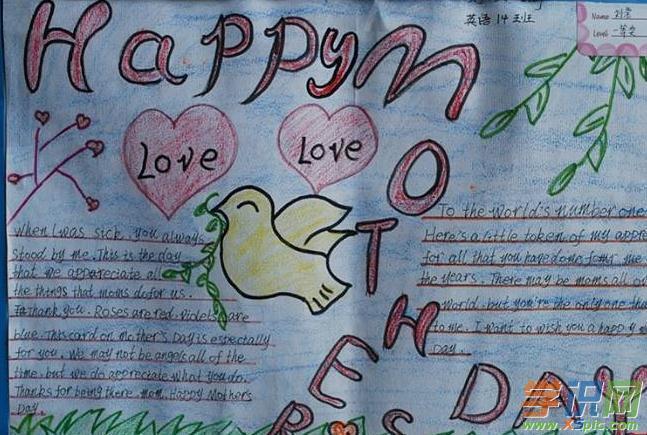 Happy MOTHER'S DAY
英语14班
Name 刘
Level 一等奖
Love
Love
When I was sick, you always
stood by me. This is the day
that we appareciate all
the things that moms do for us.
Thank you. Roses are red, violets are
blue. This card on Mother's Day is estectally
for you. We may not be angels all of the
time, but we do appreciate what you do.
Thanks for being there, mom. Happy Mother's
Day.
To the world's number one
Here's a little token of my appre
for all that you have done for me
the years. There may be moms all o
world, but you're the only one th
to me. I want to wish you a happy
Day.
学识网
www.xspic.com